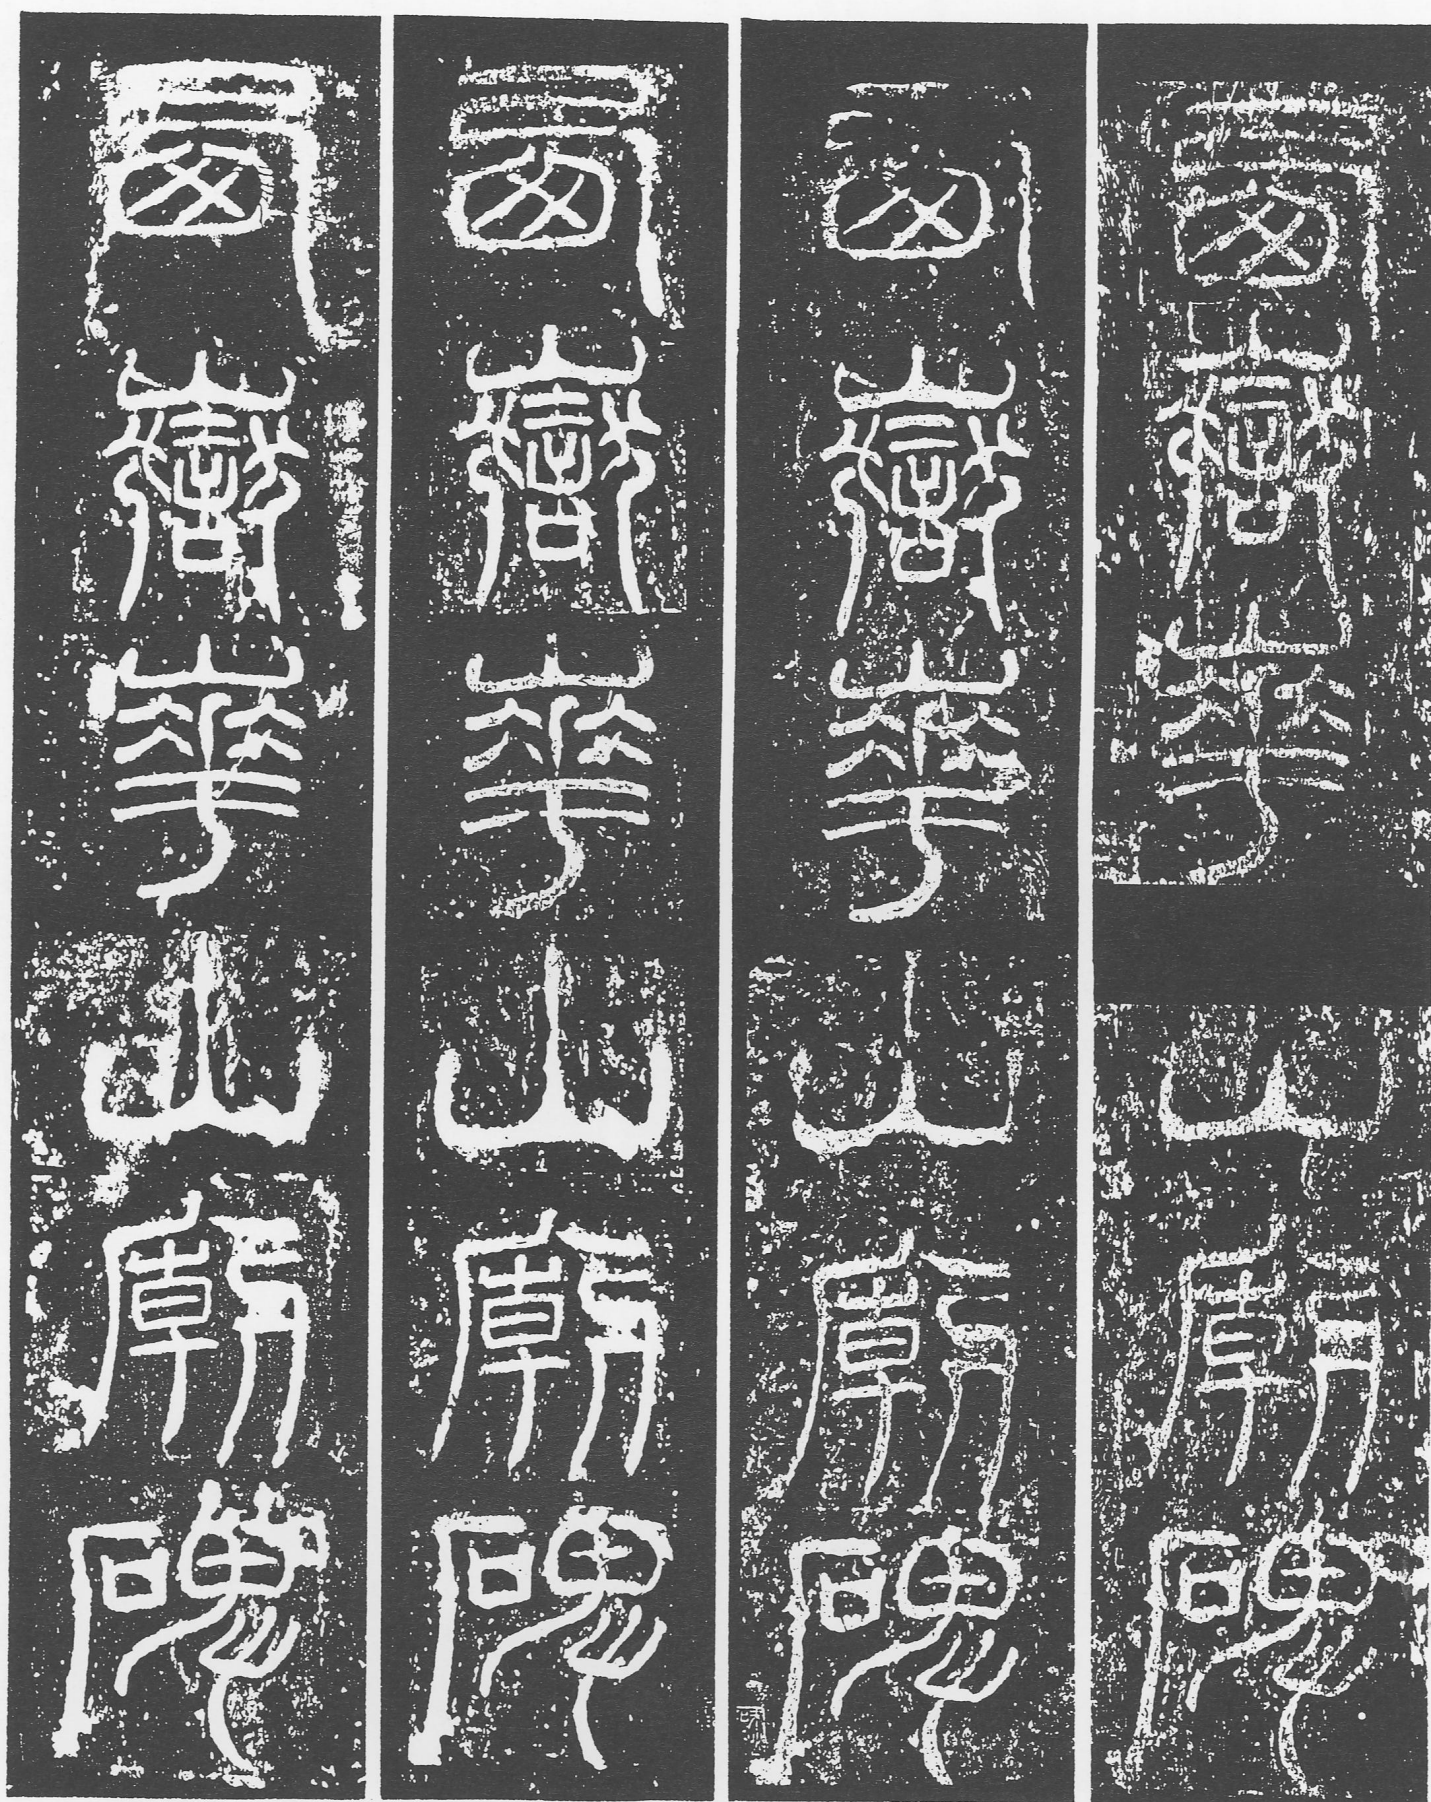 西嶽華山廟碑
西嶽華山廟碑
西嶽華山廟碑
西嶽華山廟碑